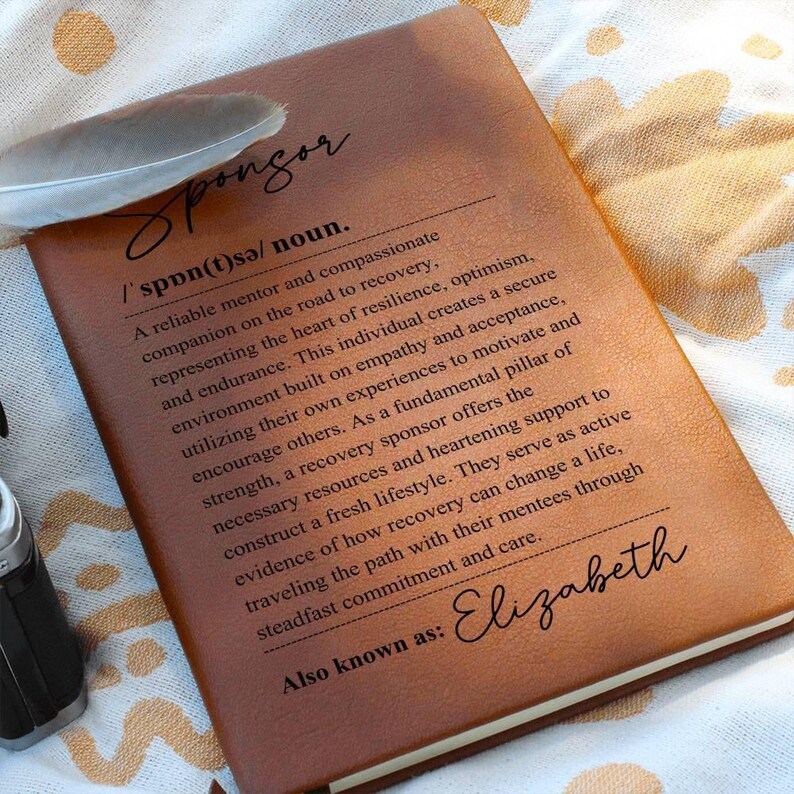 Sponsor
/ˈspɒn(t)sə/ noun.
A reliable mentor and compassionate
companion on the road to recovery,
representing the heart of resilience, optimism,
and endurance. This individual creates a secure
environment built on empathy and acceptance,
utilizing their own experiences to motivate and
encourage others. As a fundamental pillar of
strength, a recovery sponsor offers the
necessary resources and heartening support to
construct a fresh lifestyle. They serve as active
evidence of how recovery can change a life,
traveling the path with their mentees through
steadfast commitment and care.
Also known as: Elizabeth